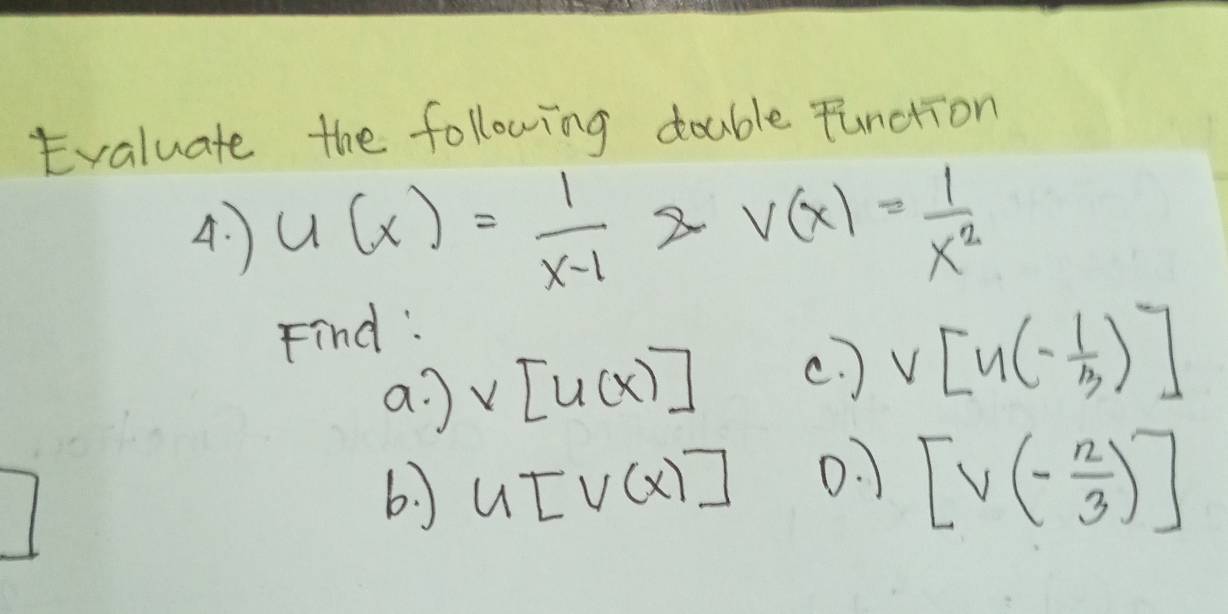 Evaluate the following double Function
4.) u(x) = 1/(x-1) & v(x) = 1/x²
Find:
a.) v[u(x)] c.) v[u(-1/3)]
b.) u[v(x)] D.) [v(-2/3)]
]